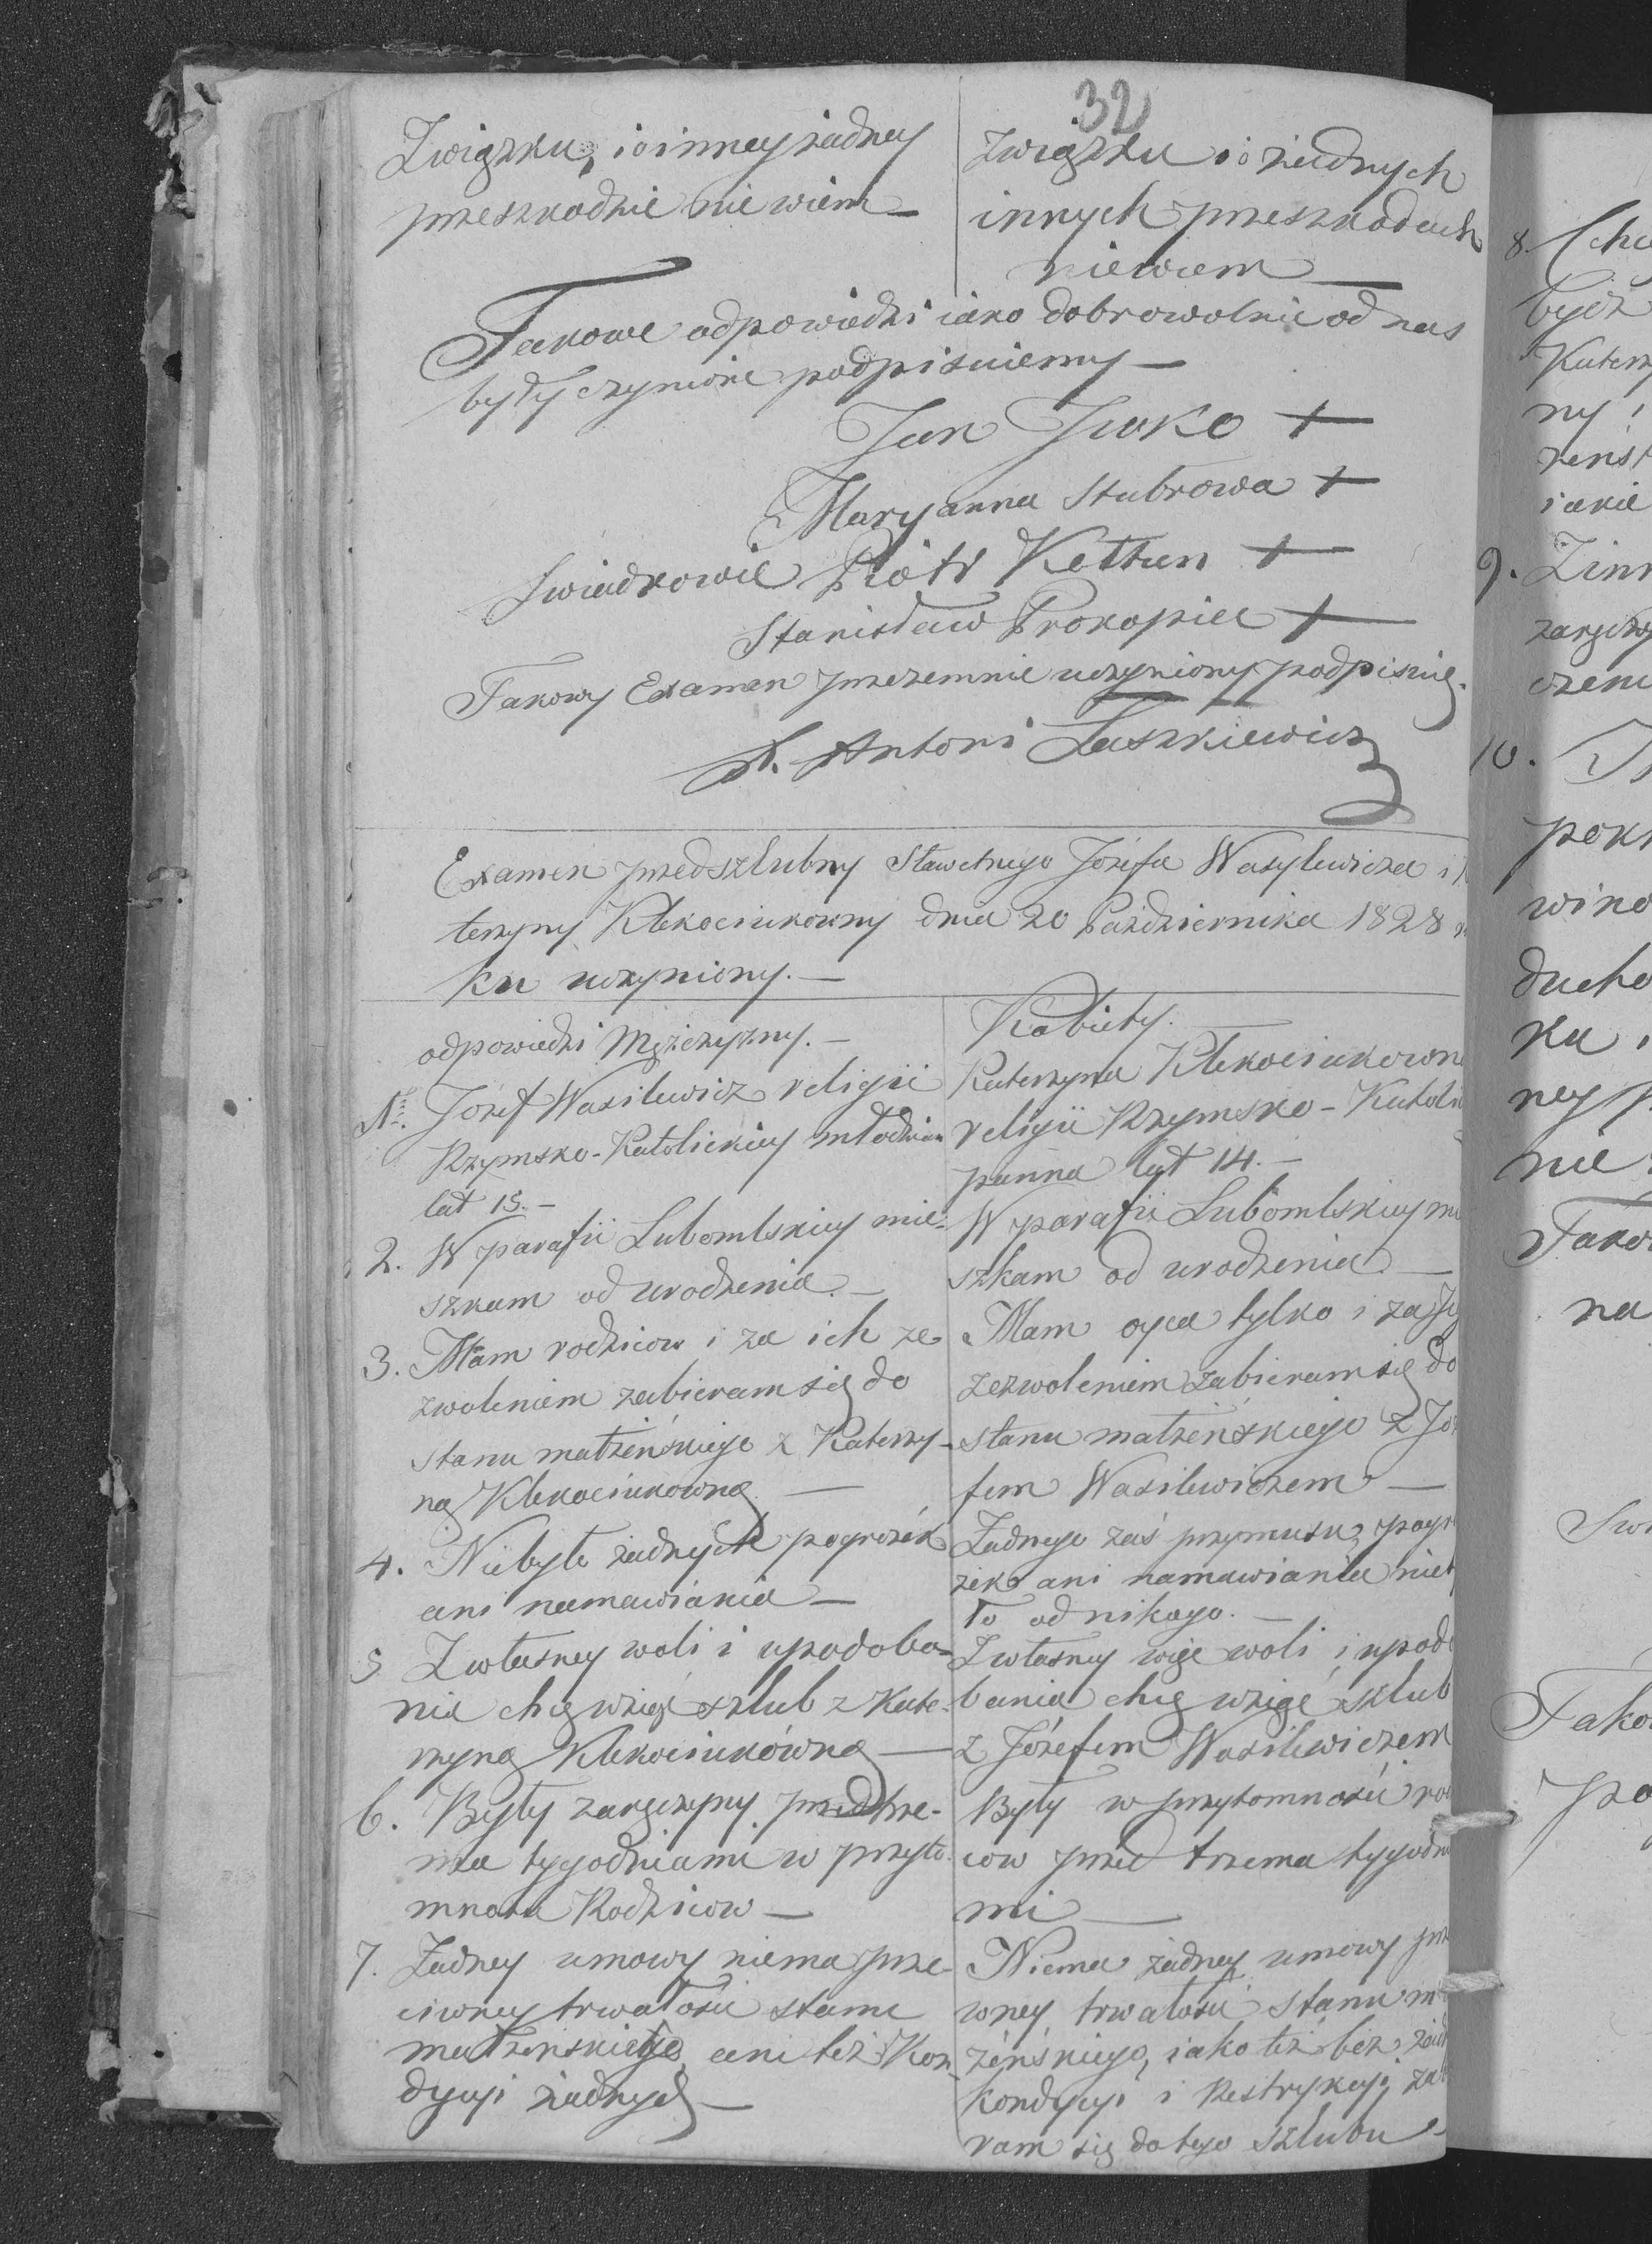 32
Związku, i o inney żadney
przeszkodzie nie wiem —
Związku i o żadnych
innych przeszkodach
niewiem —
Takowe odpowiedzi iako dobrowolnie od nas
były czynione podpisuiemy —
Jan +
Maryanna Stubrowa +
Swiadkowie Piotr Kettun +
Stanisław Prokopiec +
Takowy Examen przezemnie uczyniony podpisuię.
X. Antoni Laszkiewicz
Examen przedszlubny Sławetnego Józefa Wasylewicza i
terzyny Klekociukowny dnia 20 Października 1828
ku uczyniony. —
odpowiedzi Mężczyzny. —
№ 1. Józef Wasilewicz religii
Rzymsko-Katolickiey młodzian
lat 15. —
2. W parafii Lubomlskiey mie-
szkam od urodzenia. —
3. Mam rodziców i za ich ze-
zwoleniem zabieram się do
stanu małżeńskiego z Katerzy-
ną Klekociukowną. —
4. Niebyło żadnych pogrożek
ani namawiania —
5 Z własney woli i upodoba-
nia chcę wziąść szlub z Kate-
rzyną Klekociukówną —
6. Były zaręczyny przed trze-
ma tygodniami w przyto-
mności Rodziców —
7. Żadney umowy niema prze-
ciwney trwałości stanu
małżeńskiego, ani też Kon-
dycyi żadnych —
Kobiety.
Katerzyna Klekociukowna
religii Rzymsko-Katoli
panna lat 14. —
W parafii Lubomlskiey mi
szkam od urodzenia. —
Mam oyca tylko i za Je
zezwoleniem zabieram się do
stanu małżeńskiego z Jó
fem Wasilewiczem —
Żadnego zaś przymusu, pogr
żek ani namawiania nieb
ło od nikogo. —
Z własney więc woli i upodo
bania chcę wziąć szlub
z Józefem Wasilewiczem
Były w przytomności ro
ców przed trzema tygodni
mi —
Niema żadney umowy prz
wney trwałości stanu m
żeńskiego, iako też bez żad
kondycyi i Restrykcyi za
ram się do tego szlubu
8. Chc
bydź
Katerzy
ny i
żeńst
iakie
9. Zinn
zaręczy
czeni
10.
pokr
wino
ducho
ku i
ney p
nie
Takow
na
Swi
Tako
po